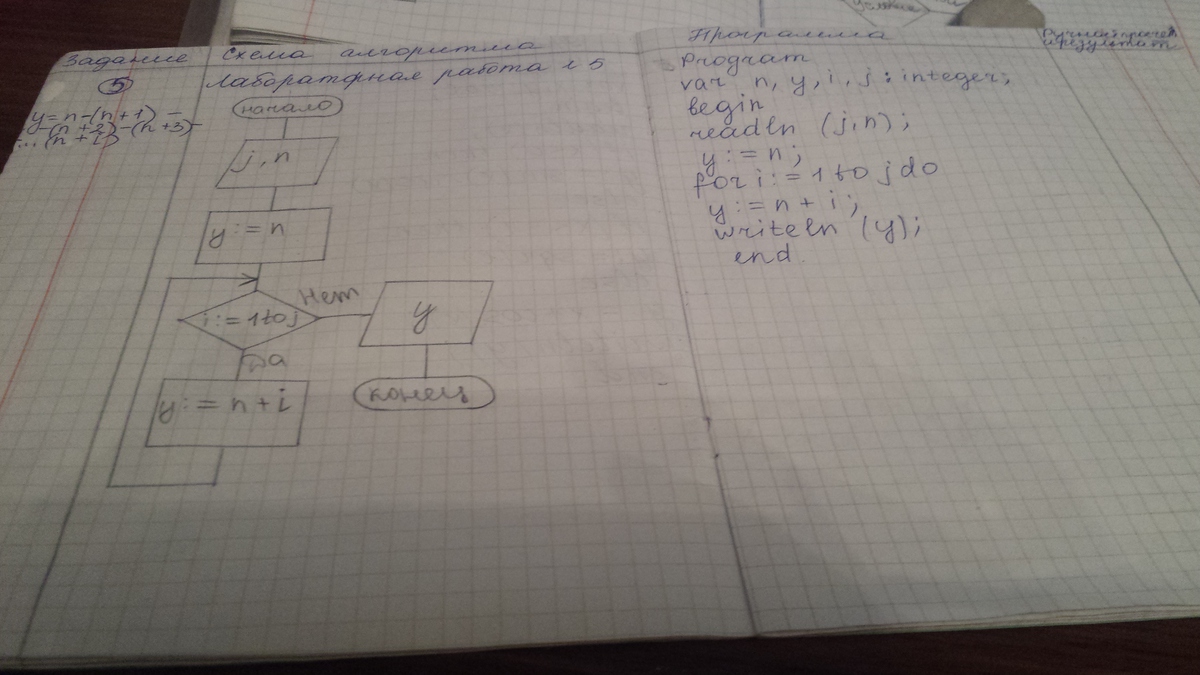 условие
Задание
Схема алгоритма
Программа
Ручной просчёт
и результат
5
Лаборатфная работа №5
y=n-(n+1)-
-(n+2)-(n+3)-
...(n+i)
начало
j, n
y:=n
i:=1 to j
Нет
y
Да
y:=n+i
конец
Program
var n, y, i, j: integer;
begin
readln (j,n);
y:=n;
for i:=1 to j do
y:=n+i;
writeln (y);
end.